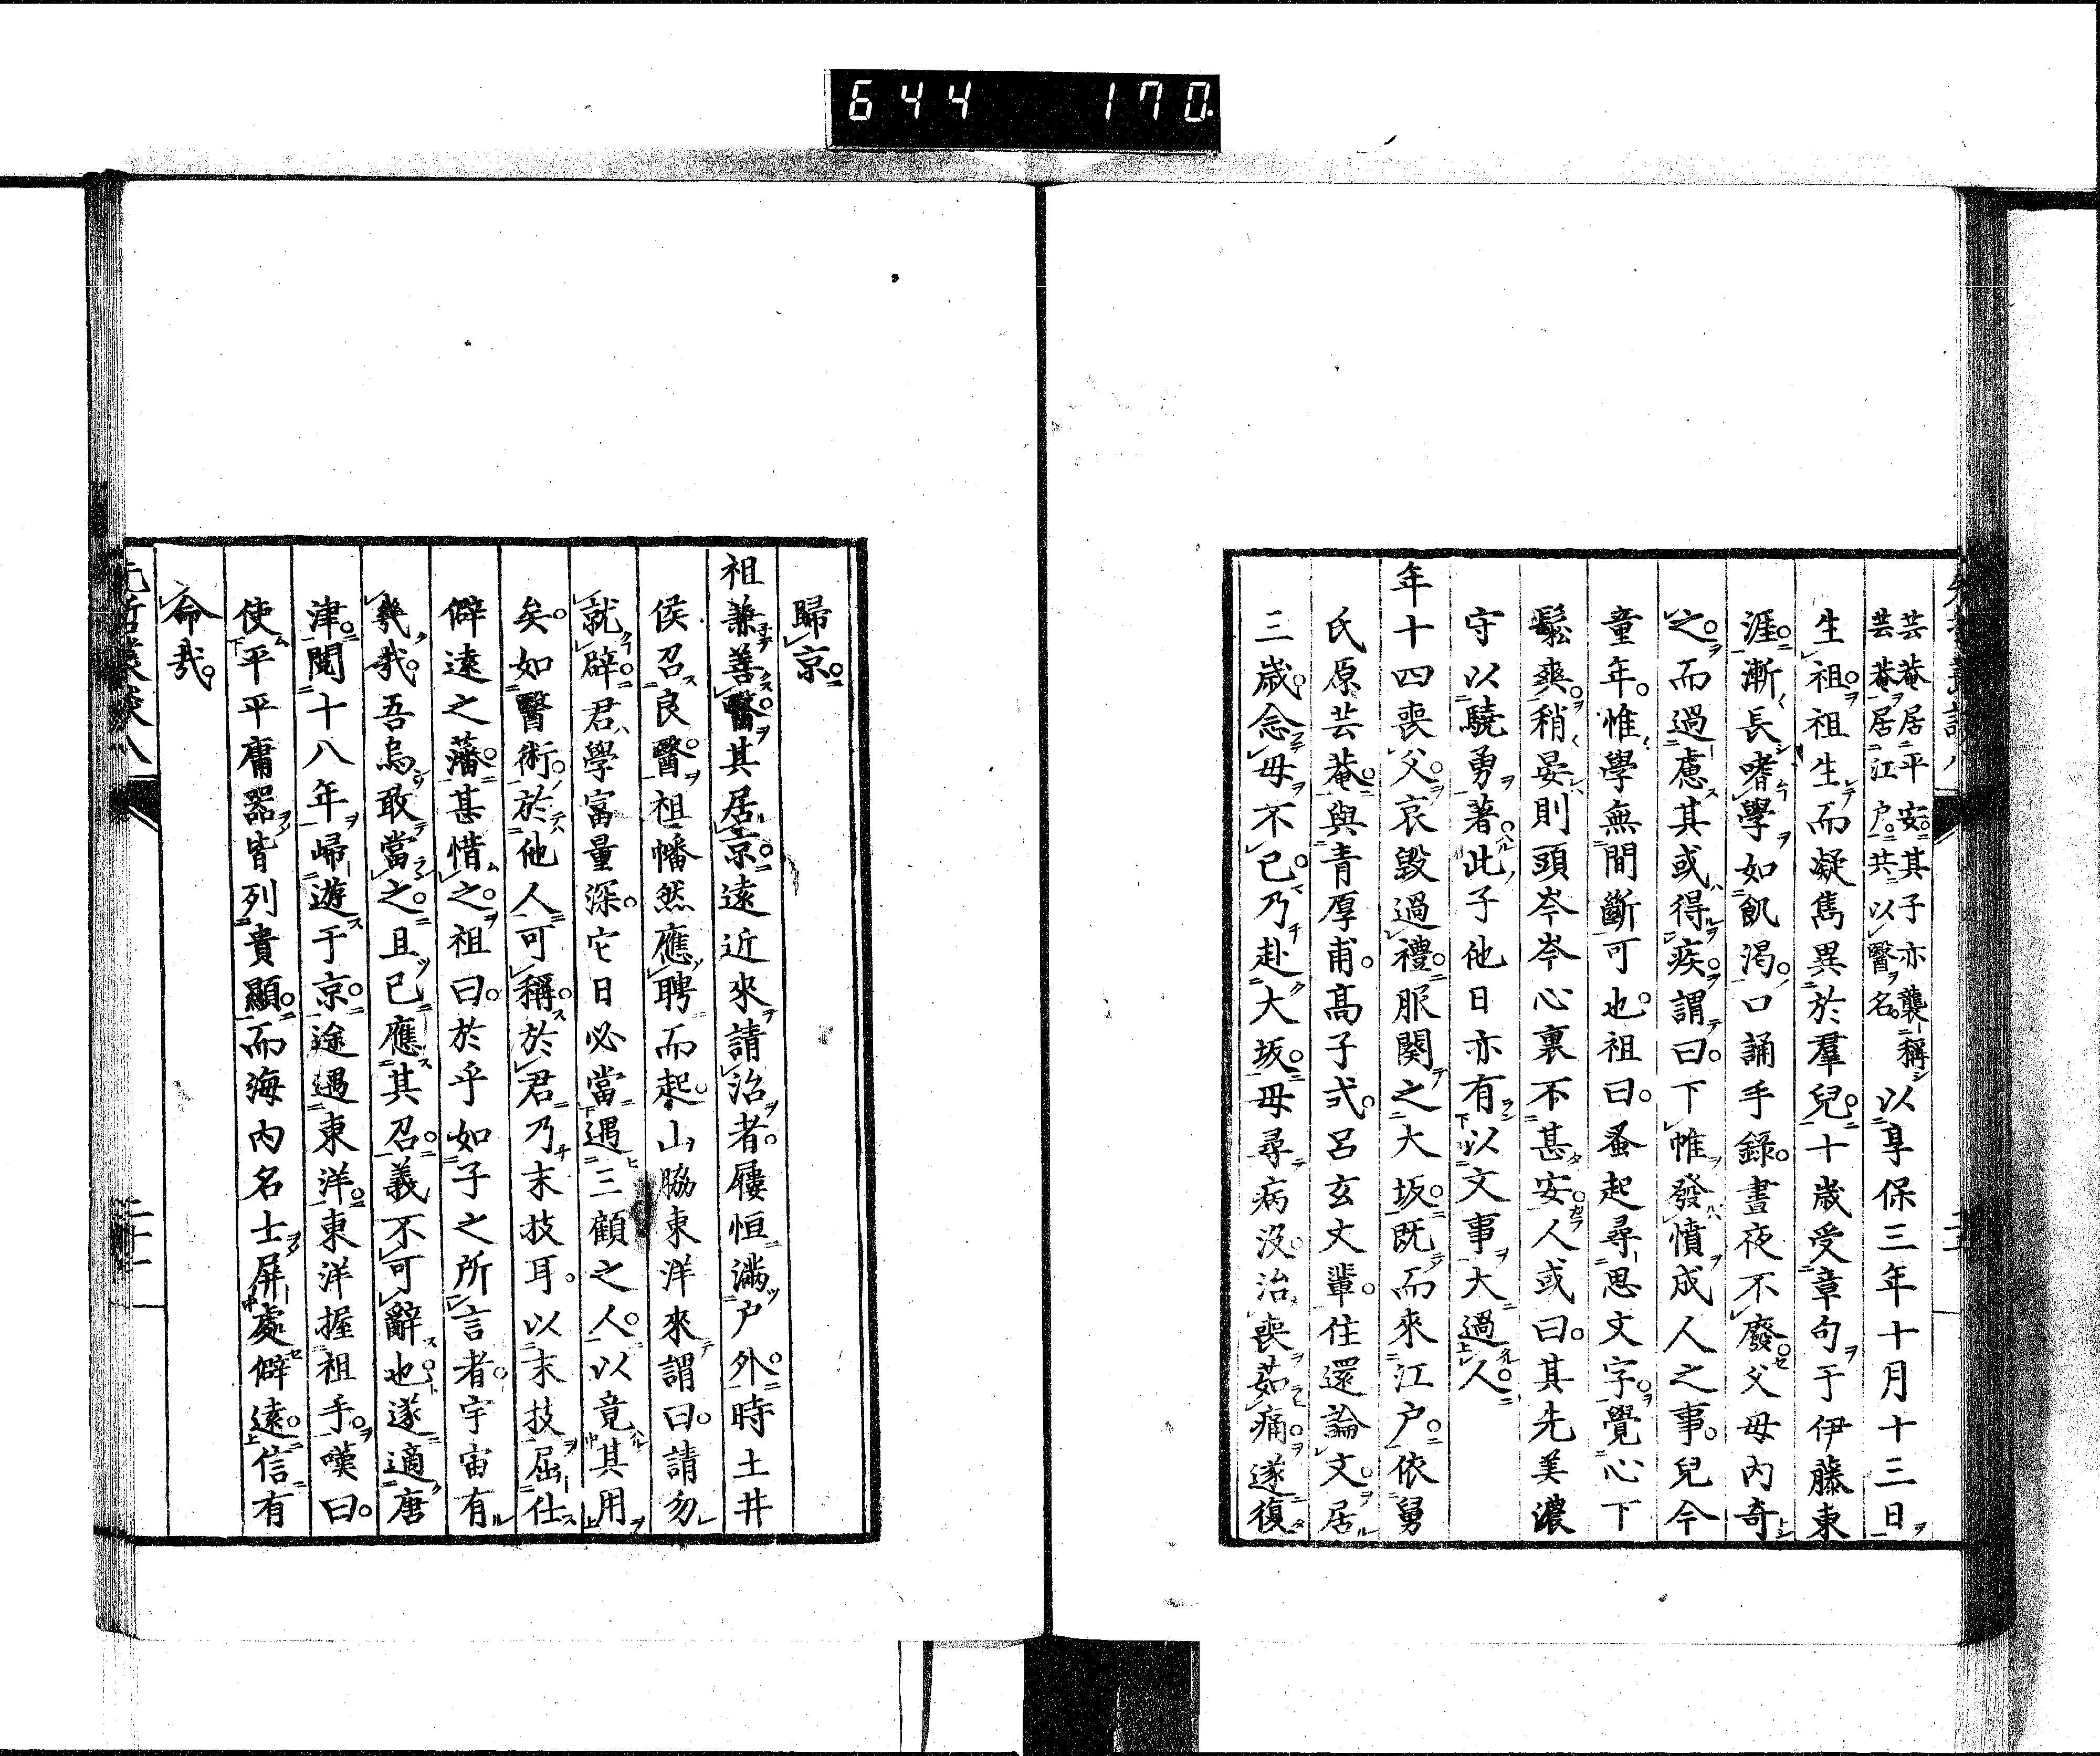 644 170.
芸菴居平安其子亦襲稱
芸菴居江戶共以醫名
以享保三年十月十三日
生祖祖生而凝雋異於羣兒十歲受章句于伊藤東
涯漸長嗜學如飢渴口誦手錄晝夜不廢父母內奇
之而過慮其或得疾謂曰下帷發憤成人之事兒今
童年惟學無間斷可也祖曰蚤起尋思文字覺心下
鬆爽稍晏則頭岑岑心裏不甚安人或曰其先美濃
守以驍勇著此子他日亦有以文事大過人
年十四喪父哀毀過禮服闋之大坂既而來江戶依舅
氏原芸菴與青厚甫高子式呂玄丈輩往還論文居
三歲念母不已乃赴大坂母尋病沒治喪茹痛遂復
歸京
祖兼善醫其居京遠近來請治者屨恒滿戶外時土井
侯召良醫祖幡然應聘而起山脇東洋來謂曰請勿
就辟君學富量深它日必當遇三顧之人以竟其用
矣如醫術於他人可稱於君乃末技耳以末技屈仕
僻遠之藩甚惜之祖曰於乎如子之所言者宇宙有
幾哉吾烏敢當之且已應其召義不可辭也遂適唐
津閱十八年歸遊于京途遇東洋東洋握祖手嘆曰
使平平庸器皆列貴顯而海內名士屏處僻遠信有
命哉
先哲叢談八